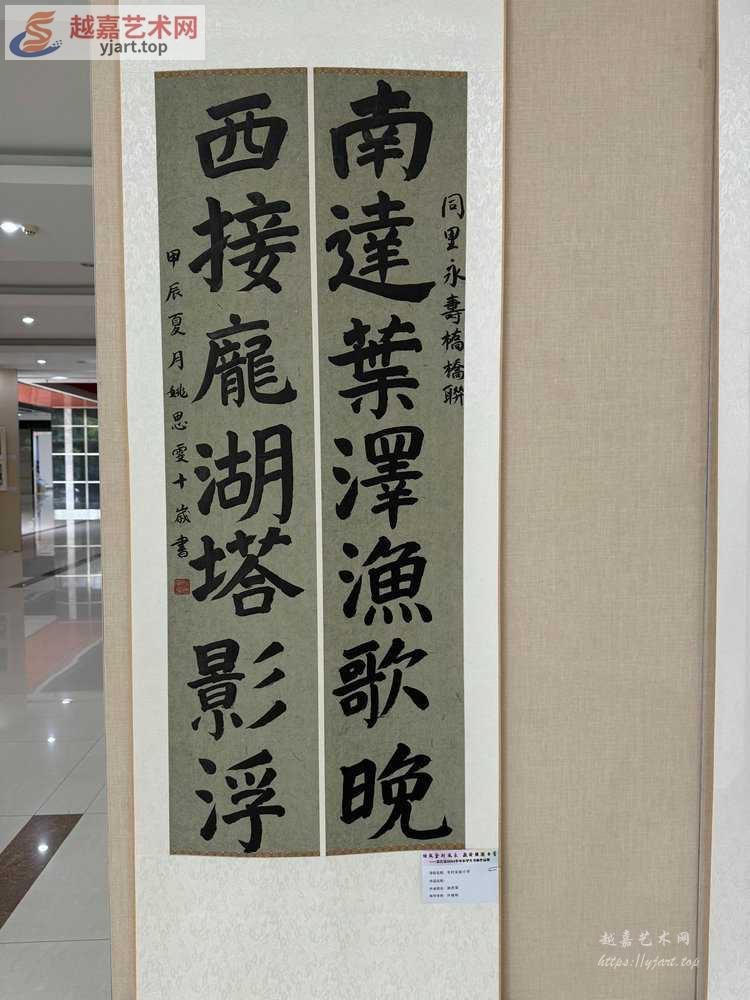 越嘉艺术网
yjart.top
同里永壽橋橋聯
南達葉澤漁歌晚
西接龐湖塔影浮
甲辰夏月姚思雯十歲書
越嘉艺术网
https://yjart.top